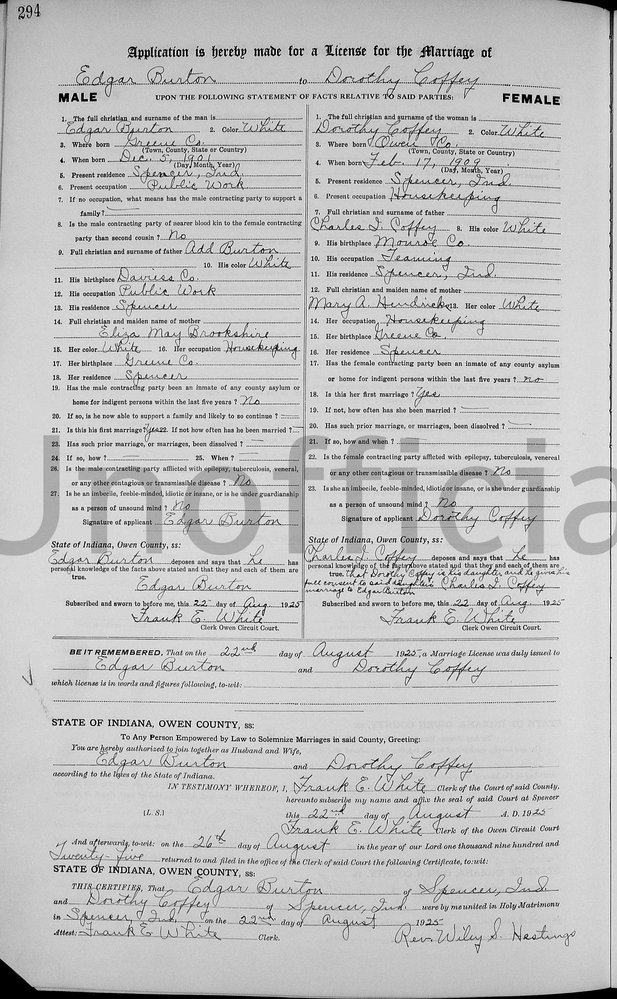 294
Application is hereby made for a License for the Marriage of
Edgar Burton to Dorothy Coffey
MALE UPON THE FOLLOWING STATEMENT OF FACTS RELATIVE TO SAID PARTIES: FEMALE
1. The full christian and surname of the man is
Edgar Burton 2. Color White
3. Where born Greene Co.
(Town, County, State or Country)
4. When born Dec. 5, 1901
(Day, Month, Year)
5. Present residence Spencer, Ind.
6. Present occupation Public Work
7. If no occupation, what means has the male contracting party to support a
family?
8. Is the male contracting party of nearer blood kin to the female contracting
party than second cousin? No
9. Full christian and surname of father Add Burton
10. His color White
11. His birthplace Daviess Co.
12. His occupation Public Work
13. His residence Spencer
14. Full christian and maiden name of mother
Eliza May Brookshire
15. Her color White 16. Her occupation Housekeeping
17. Her birthplace Greene Co.
18. Her residence Spencer
19. Has the male contracting party been an inmate of any county asylum or
home for indigent persons within the last five years? No
20. If so, is he now able to support a family and likely to so continue?
21. Is this his first marriage? Yes 22. If not how often has he been married?
23. Has such prior marriage, or marriages, been dissolved?
24. If so, how? 25. When?
26. Is the male contracting party afflicted with epilepsy, tuberculosis, veneral,
or any other contagious or transmissible disease? No
27. Is he an imbecile, feeble-minded, idiotic or insane, or is he under guardianship
as a person of unsound mind? No
Signature of applicant Edgar Burton
State of Indiana, Owen County, ss:
Edgar Burton deposes and says that he has
personal knowledge of the facts above stated and that they and each of them are
true.
Edgar Burton
Subscribed and sworn to before me, this 22 day of Aug 1925
Frank E. White
Clerk Owen Circuit Court.
1. The full christian and surname of the woman is
Dorothy Coffey 2. Color White
3. Where born Owen Co.
(Town, County, State or Country)
4. When born Feb. 17, 1909
(Day, Month, Year)
5. Present residence Spencer, Ind.
6. Present occupation Housekeeping
7. Full christian and surname of father
Charles I. Coffey 8. His color White
9. His birthplace Monroe Co.
10. His occupation Teaming
11. His residence Spencer, Ind.
12. Full christian and maiden name of mother
Mary A. Hendricks 13. Her color White
14. Her occupation Housekeeping
15. Her birthplace Greene Co.
16. Her residence Spencer
17. Has the female contracting party been an inmate of any county asylum
or home for indigent persons within the last five years? no
18. Is this her first marriage? Yes
19. If not, how often has she been married?
20. Has such prior marriage, or marriages, been dissolved?
21. If so, how and when?
22. Is the female contracting party afflicted with epilepsy, tuberculosis, venereal
or any other contagious or transmissible disease? No
23. Is she an imbecile, feeble-minded, idiotic or insane, or is she under guardianship
as a person of unsound mind? No
Signature of applicant Dorothy Coffey
State of Indiana, Owen County, ss:
Charles I. Coffey deposes and says that he has
personal knowledge of the facts above stated and that they and each of them are
true. that Dorothy Coffey is his daughter, and he gives his
full consent to said daughter's Charles I. Coffey
marriage to Edgar Burton
Subscribed and sworn to before me, this 22 day of Aug. 1925
Frank E. White
Clerk Owen Circuit Court.
Unofficia
BE IT REMEMBERED, That on the 22nd day of August 1925, a Marriage License was duly issued to
Edgar Burton and Dorothy Coffey
which license is in words and figures following, to-wit:
STATE OF INDIANA, OWEN COUNTY, ss:
To Any Person Empowered by Law to Solemnize Marriages in said County, Greeting:
You are hereby authorized to join together as Husband and Wife,
Edgar Burton and Dorothy Coffey
according to the laws of the State of Indiana.
IN TESTIMONY WHEREOF, I, Frank E. White Clerk of the Court of said County,
hereunto subscribe my name and affix the seal of said Court at Spencer
[L. S.] this 22nd day of August A. D. 1925
Frank E. White Clerk of the Owen Circuit Court
And afterwards, to-wit: on the 26th day of August in the year of our Lord one thousand nine hundred and
Twenty-five returned to and filed in the office of the Clerk of said Court the following Certificate, to-wit:
STATE OF INDIANA, OWEN COUNTY, ss:
THIS CERTIFIES, That Edgar Burton of Spencer, Ind
and Dorothy Coffey of Spencer, Ind. were by me united in Holy Matrimony
in Spencer, Ind. on the 22nd day of August 1925
Attest: Frank E. White Clerk. Rev. Wiley S. Hestings